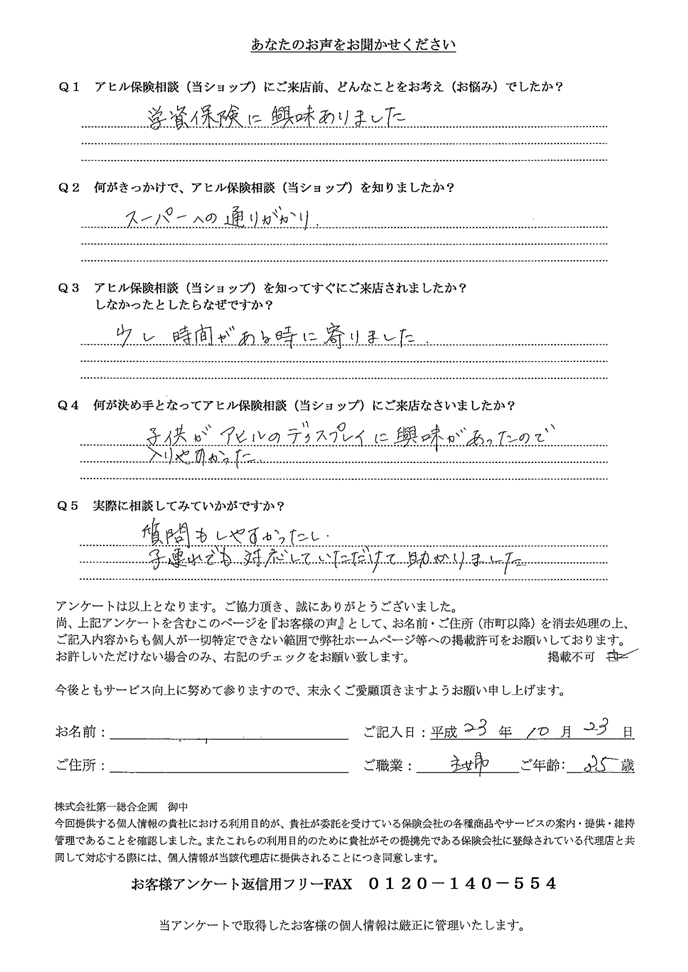 あなたのお声をお聞かせください
Q1 アヒル保険相談(当ショップ)にご来店前、どんなことをお考え(お悩み)でしたか?
学資保険に興味ありました
Q2 何がきっかけで、アヒル保険相談(当ショップ)を知りましたか?
スーパーへの通りがかり.
Q3 アヒル保険相談(当ショップ)を知ってすぐにご来店されましたか?
しなかったとしたらなぜですか?
少し時間がある時に寄りました.
Q4 何が決め手となってアヒル保険相談(当ショップ)にご来店なさいましたか?
子供がアヒルのディスプレイに興味があったので
入りやすかった.
Q5 実際に相談してみていかがですか?
質問もしやすかったし.
子連れでも対応していただけて助かりました
アンケートは以上となります。ご協力頂き、誠にありがとうございました。
尚、上記アンケートを含むこのページを『お客様の声』として、お名前・ご住所(市町以降)を消去処理の上、
ご記入内容からも個人が一切特定できない範囲で弊社ホームページ等への掲載許可をお願いしております。
お許しいただけない場合のみ、右記のチェックをお願い致します。 掲載不可
今後ともサービス向上に努めて参りますので、末永くご愛願頂きますようお願い申し上げます。
お名前: ご記入日:平成 23 年 10 月 23 日
ご住所: ご職業: 主婦 ご年齢: 35 歳
株式会社第一総合企画 御中
今回提供する個人情報の貴社における利用目的が、貴社が委託を受けている保険会社の各種商品やサービスの案内・提供・維持
管理であることを確認しました。またこれらの利用目的のために貴社がその提携先である保険会社に登録されている代理店と共
同して対応する際には、個人情報が当該代理店に提供されることにつき同意します。
お客様アンケート返信用フリーFAX 0120-140-554
当アンケートで取得したお客様の個人情報は厳正に管理いたします。